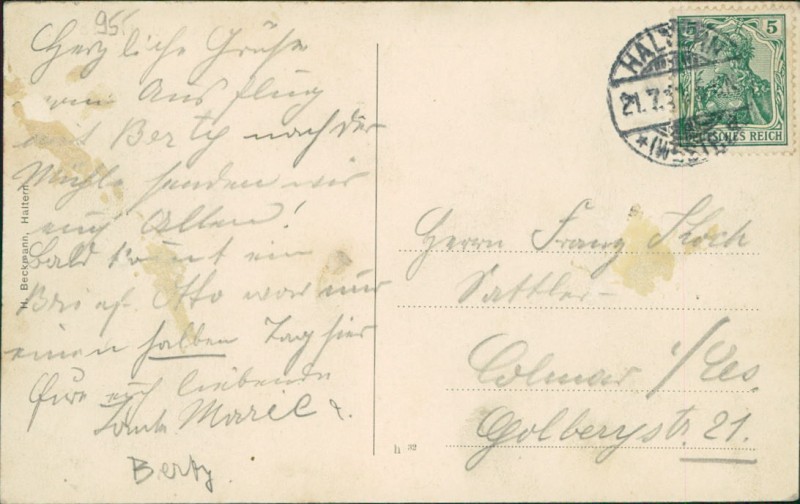 95.
Herzliche Grüße
vom Ausflug
mit Berty nach der
Mühle senden wir
euch Allen!
Bald kommt ein
Brief. Otto war nur
einen halben Tag hier
Eure euch liebende
Tante Marie u.
Berty.
H. Beckmann, Haltern
h 32
HALTERN
21.7.
*(WESTF.)*
5
DEUTSCHES REICH
Herrn Franz Koch
Sattler
Colmar i/Els.
Golberystr. 21.